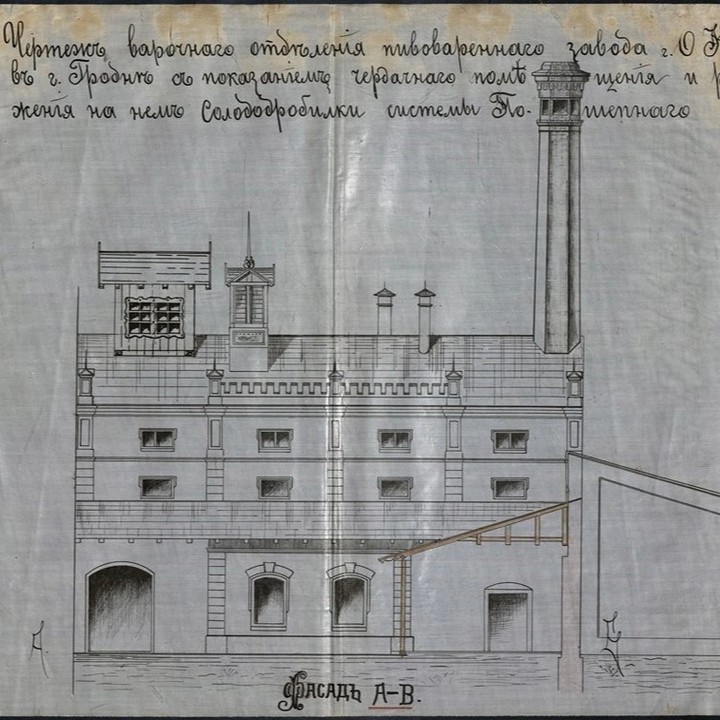 Чертежъ варочнаго отдѣленія пивовареннаго завода г. О
въ г. Гроднѣ съ показаніемъ чердачнаго помѣщенія и
женія на немъ Солододробилки системы По-шепнаго
А.
Фасадъ А-В.